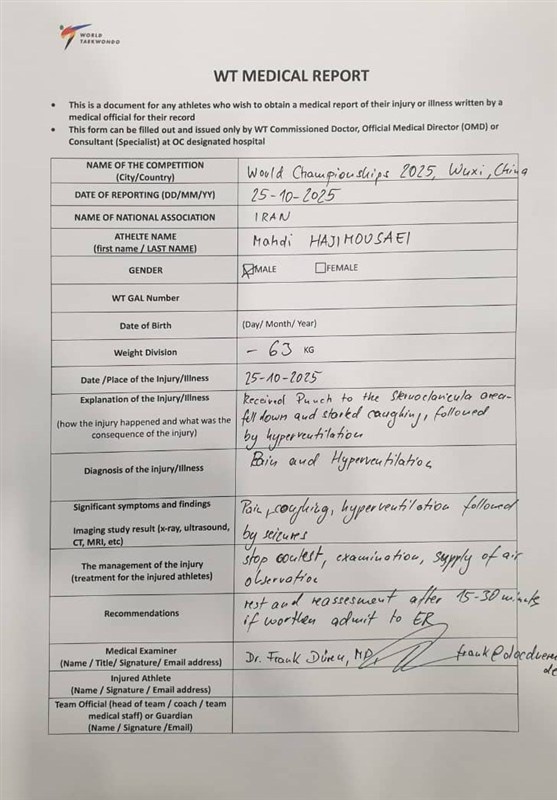 WORLD
TAEKWONDO
WT MEDICAL REPORT
• This is a document for any athletes who wish to obtain a medical report of their injury or illness written by a
medical official for their record
• This form can be filled out and issued only by WT Commissioned Doctor, Official Medical Director (OMD) or
Consultant (Specialist) at OC designated hospital
NAME OF THE COMPETITION
(City/Country)
World Championships 2025, Wuxi, China
DATE OF REPORTING (DD/MM/YY)
25-10-2025
NAME OF NATIONAL ASSOCIATION
IRAN
ATHELTE NAME
(first name / LAST NAME)
Mahdi HAJIMOUSAEI
GENDER
MALE
FEMALE
WT GAL Number
Date of Birth
(Day/ Month/ Year)
Weight Division
- 63 KG
Date /Place of the Injury/Illness
25-10-2025
Explanation of the Injury/Illness
(how the injury happened and what was the
consequence of the injury)
Received Punch to the area-
fell down and started coughing, followed
by hyperventilation
Diagnosis of the injury/Illness
Pain and Hyperventilation
Significant symptoms and findings
Imaging study result (x-ray, ultrasound,
CT, MRI, etc)
Pain, coughing, hyperventilation followed
by seizures
The management of the injury
(treatment for the injured athletes)
stop contest, examination, supply of air
observation
Recommendations
rest and reassesment after 15-30 minuts
if worthen admit to ER
Medical Examiner
(Name / Title/ Signature/ Email address)
Dr. Frank Düren, MD,
Injured Athlete
(Name / Signature / Email address)
Team Official (head of team / coach / team
medical staff) or Guardian
(Name / Signature /Email)